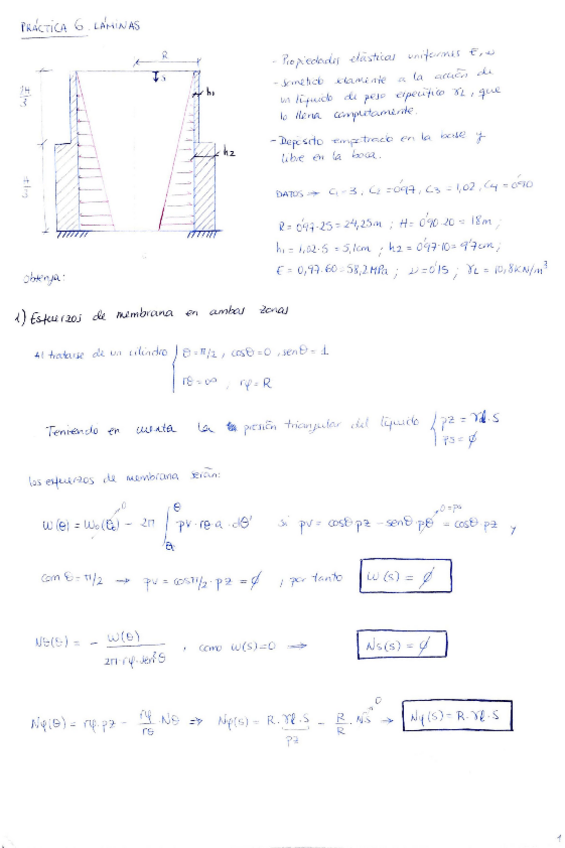 PRÁCTICA 6. LÁMINAS
R
S
h1
h2
H/2
- Propiedades elásticas uniformes E, ν
- Sometido solamente a la acción de
un líquido de peso específico γL, que
lo llena completamente.
- Depósito empotrado en la base y
libre en la boca.
DATOS → C1=3, C2=0'97, C3=1,02, C4=0'90
R=0'97·25=24,25m ; H=0'90·20=18m ;
h1=1,02·5=5,1cm ; h2=0'97·10=9'7cm ;
E=0,97·60=58,2MPa ; ν=0'15 ; γL=10,8KN/m³
Obtenga:
1) Esfuerzos de membrana en ambas zonas
Al tratarse de un cilindro { θ=π/2, cosθ=0, senθ=1
rθ=∞ ; rφ=R
Teniendo en cuenta la presión triangular del líquido { pz=γl·S
ps=∅
Los esfuerzos de membrana serán:
W(θ) = W0(θ0) - 2π ∫ pv·rθ·a·dθ' si pv=cosθ pz - senθ pθ = cosθ pz y
con θ=π/2 → pv=cosπ/2·pz=∅, por tanto W(s)=∅
Nθ(θ) = - W(θ) / 2π·rφ·sen²θ, como W(s)=0 → Ns(s)=∅
Nφ(θ) = rφ·pz - rφ/rθ·Nθ ⇒ Nφ(s) = R·γl·S - R/R·Ns → Nφ(s)=R·γl·S
pz
1